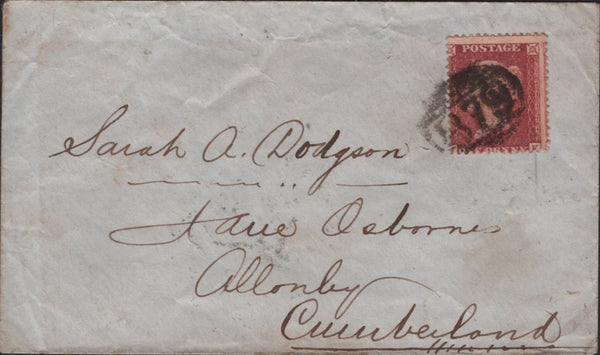 POSTAGE
79
Sarah A. Dodgson
Jane Osbornes
Allonby
Cumberland